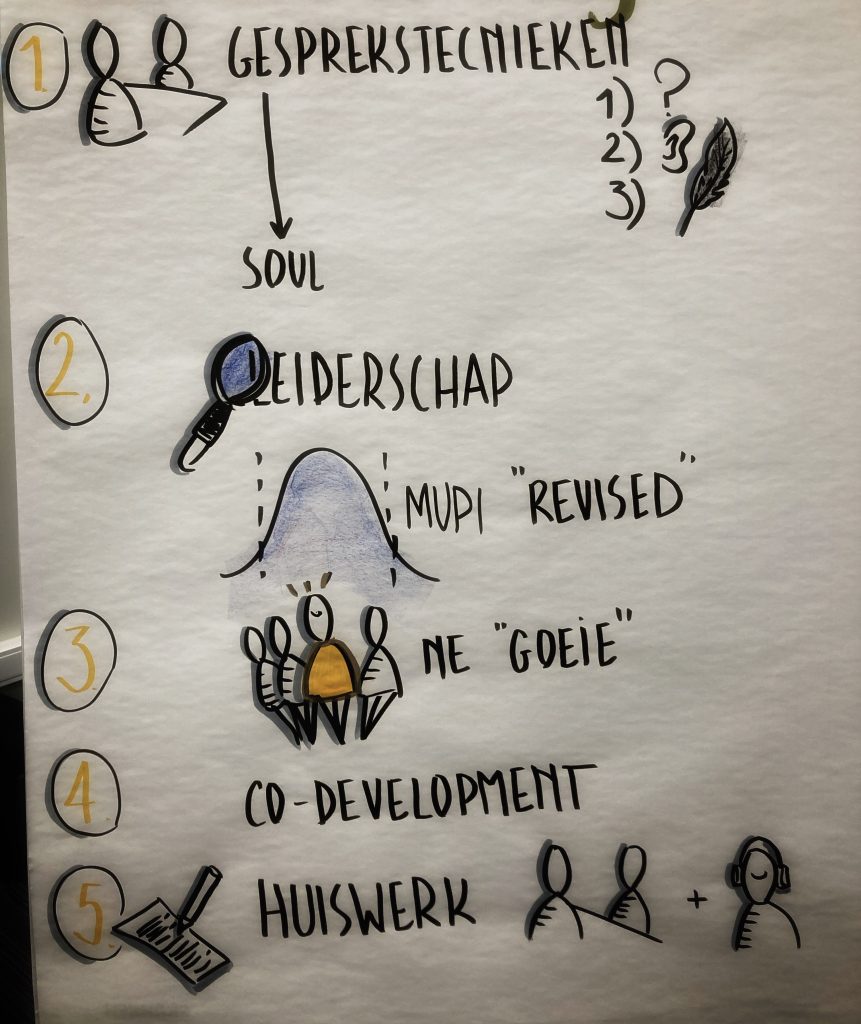 1 GESPREKSTECNIEKEN
1) ?
2)
3)
SOUL
2. LEIDERSCHAP
MUPI "REVISED"
3. NE "GOEIE"
4. CO-DEVELOPMENT
5. HUISWERK +